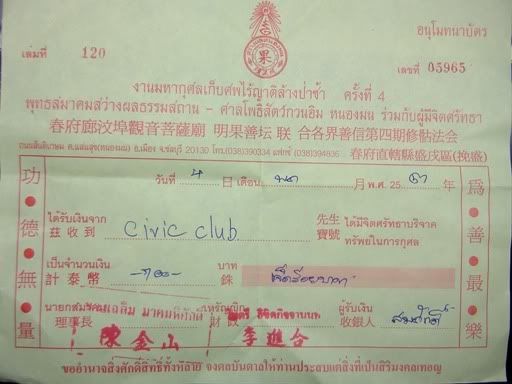 อนุโมทนาบัตร
เล่มที่ 120
果
เลขที่ 05965
งานมหากุศลเก็บศพไร้ญาติล้างป่าช้า ครั้งที่ 4
พุทธสมาคมสว่างผลธรรมสถาน - ศาลโพธิ์สัตว์กวนอิม หนองมน ร่วมกับผู้มีจิตศรัทธา
春府廊汶埠觀音菩薩廟 明果善坛 联合各界善信第四期修骷法会
ถนนสันติเกษม ต.แสนสุข(หนองมน) อ.เมือง จ.ชลบุรี 20130 โทร.(038)390334 แฟกซ์ (038)394836 春府直轄縣盛戌區(挽盛)
วันที่ 4 วันเดือน พ.ศ. 25 ปี
功德無量
為善最樂
ได้รับเงินจาก civic club. 先生 ได้มีจิตศรัทธาบริจาค
茲收到 寶號 ทรัพย์ในการกุศล
เป็นจำนวนเงิน -700- บาท เจ็ดร้อยบาท
計泰幣 銖
นายกสมาคม เหรัญญิก ผู้รับเงิน
理事長 財政 收銀人
陳金山 李進合
ขออำนาจสิ่งศักดิ์สิทธิ์ทั้งหลาย จงดลบันดาลให้ท่านประสบแต่สิ่งที่เป็นสิริมงคลเทอญ